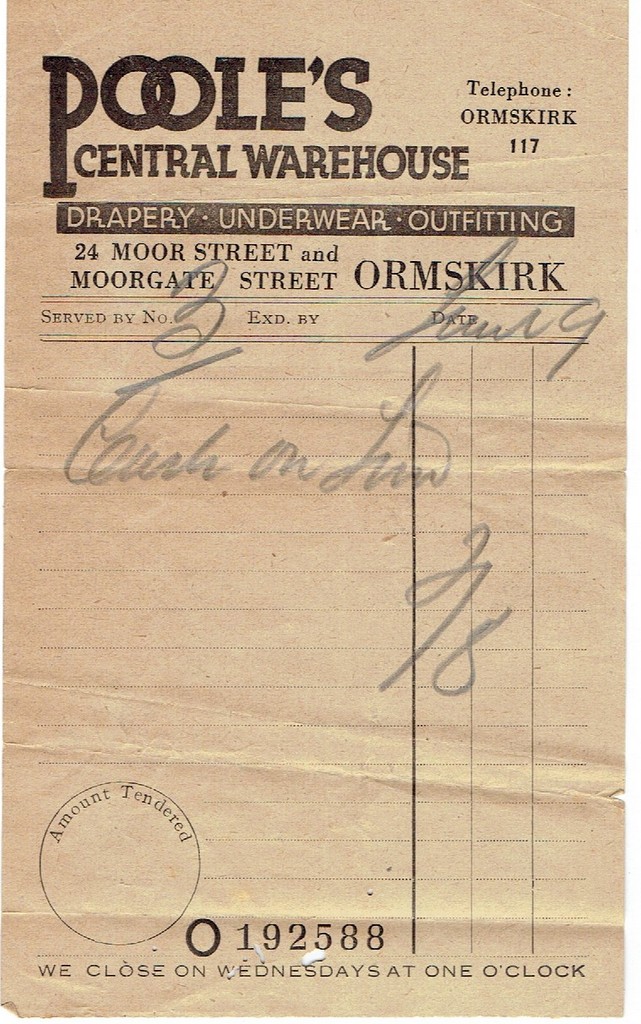 POOLE'S
CENTRAL WAREHOUSE
Telephone:
ORMSKIRK
117
DRAPERY · UNDERWEAR · OUTFITTING
24 MOOR STREET and
MOORGATE STREET ORMSKIRK
SERVED BY No. 3 EXD. BY DATE 9
on
/8
Amount Tendered
O 192588
WE CLOSE ON WEDNESDAYS AT ONE O'CLOCK